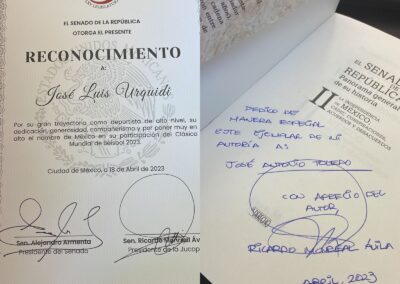 EL SENADO DE LA REPÚBLICA
OTORGA EL PRESENTE
RECONOCIMIENTO
A:
José Luis Urquidi
Por su gran trayectoria como deportista de alto nivel, su
dedicación, generosidad, compañerismo y por poner muy en
alto el nombre de México en su participación del Clásico
Mundial de béisbol 2023.
Ciudad de México, a 18 de Abril de 2023
Sen. Alejandro Armenta
Presidente del Senado
Sen. Ricardo Monreal Áv
Presidente de la Jucop
EL SENADO
DE LA
REPÚBLICA
Panorama general
de su historia
II
LA INDEPENDENCIA
DE MÉXICO
ACUERDOS Y DESACUERDOS
DEDICO DE
MANERA ESPECIAL
ESTE EJEMPLAR DE MI
AUTORÍA A:
JOSÉ ANTONIO TOLEDO
CON APRECIO DEL
AUTOR,
RICARDO MONREAL ÁVILA
ABRIL, 2023